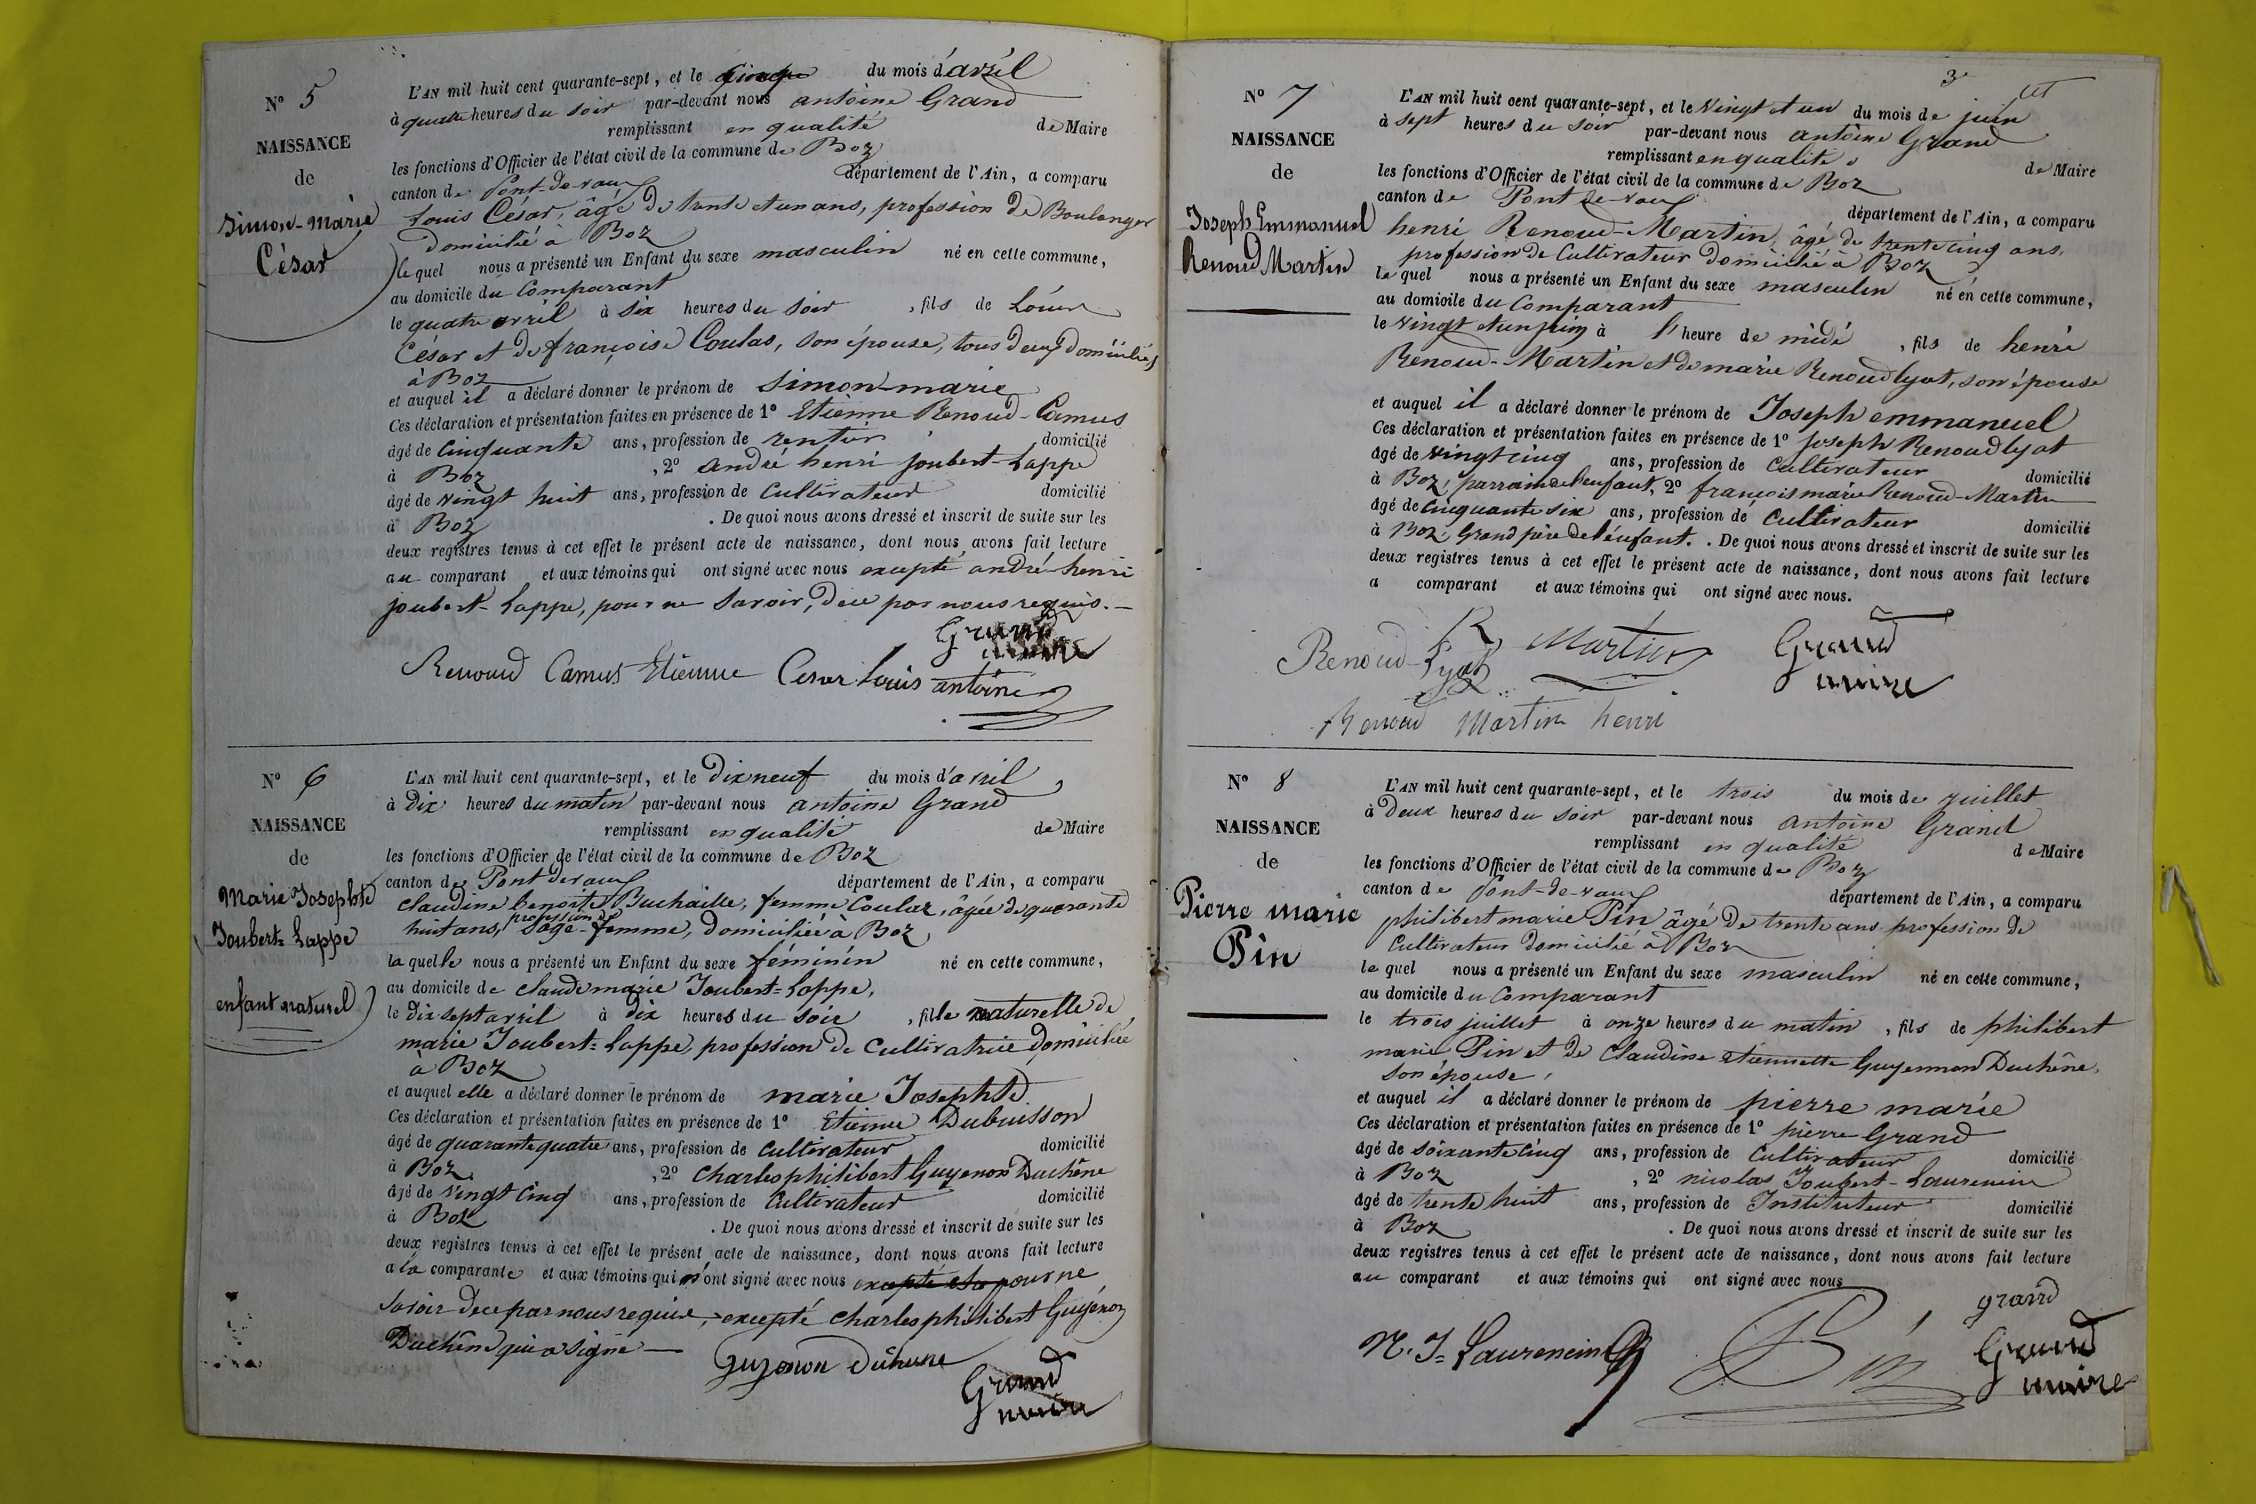 N° 5
NAISSANCE
de
Simon-Marie
César
L'AN mil huit cent quarante-sept, et le cinq du mois d'avril
à quatre heures du soir par-devant nous antoine Grand
remplissant en qualité de Maire
les fonctions d'Officier de l'état civil de la commune de Boz
canton de Pont-de-vaux département de l'Ain, a comparu
Louis César, âgé de trente et un ans, profession de Boulanger
domicilié à Boz
lequel nous a présenté un Enfant du sexe masculin né en cette commune,
au domicile du Comparant
le quatre avril à six heures du soir, fils de Louis
César et de françoise Coulas, son épouse, tous deux domiciliés
à Boz
et auquel il a déclaré donner le prénom de Simon-marie
Ces déclaration et présentation faites en présence de 1° Etienne Renoud-Camus
âgé de cinquante ans, profession de rentier domicilié
à Boz, 2° andré henri joubert-Lappe
âgé de vingt huit ans, profession de Cultivateur domicilié
à Boz. De quoi nous avons dressé et inscrit de suite sur les
deux registres tenus à cet effet le présent acte de naissance, dont nous avons fait lecture
au comparant et aux témoins qui ont signé avec nous excepté andré-henri
joubert-Lappe, pour ne Savoir, de ce par nous requis.
Grand
maire
Renoud Camus Etienne Cesar Louis antoine
N° 6
NAISSANCE
de
Marie Josephte
Joubert=Lappe
enfant naturel
L'AN mil huit cent quarante-sept, et le dix neuf du mois d'avril
à dix heures du matin par-devant nous antoine Grand
remplissant en qualité de Maire
les fonctions d'Officier de l'état civil de la commune de Boz
canton de Pont de vaux département de l'Ain, a comparu
Claudine benoite Buchaille, femme Coulaz, âgée de quarante
huit ans, profession de Sage-femme, domiciliée à Boz
laquelle nous a présenté un Enfant du sexe féminin né en cette commune,
au domicile de claude marie Joubert=Lappe,
le dix sept avril à dix heures du soir, fille naturelle de
marie Joubert=Lappe, profession de Cultivatrice domiciliée
à Boz
et auquel elle a déclaré donner le prénom de marie Josephte
Ces déclaration et présentation faites en présence de 1° Etienne Dubuisson
âgé de quarante quatre ans, profession de cultivateur domicilié
à Boz, 2° Charles philibert Guyenon Duchêne
âgé de vingt cinq ans, profession de Cultivateur domicilié
à Boz. De quoi nous avons dressé et inscrit de suite sur les
deux registres tenus à cet effet le présent acte de naissance, dont nous avons fait lecture
a la comparante et aux témoins qui n'ont signé avec nous excepté pour ne
Savoir de ce par nous requis, excepté charles philibert Guyénon
Duchêne qui a signé
guyenon duchene
Grand
maire
3
N° 7
NAISSANCE
de
Joseph Emmanuel
Renoud Martin
L'AN mil huit cent quarante-sept, et le vingt et un du mois de juin
à sept heures du soir par-devant nous antoine Grand
remplissant en qualité de Maire
les fonctions d'Officier de l'état civil de la commune de Boz
canton de Pont de-vaux département de l'Ain, a comparu
henri Renoud-Martin, âgé de trente cinq ans,
profession de Cultivateur domicilié à Boz
lequel nous a présenté un Enfant du sexe masculin né en cette commune,
au domicile du Comparant
le vingt et un juin à l'heure de midi, fils de henri
Renoud-Martin et de marie Renoud lyat, son épouse
et auquel il a déclaré donner le prénom de Joseph emmanuel
Ces déclaration et présentation faites en présence de 1° joseph Renoud lyat
âgé de vingt cinq ans, profession de Cultivateur domicilié
à Boz, parrain de l'enfant, 2° françois marie Renoud-Martin
âgé de cinquante six ans, profession de Cultivateur domicilié
à Boz Grand père de l'enfant. De quoi nous avons dressé et inscrit de suite sur les
deux registres tenus à cet effet le présent acte de naissance, dont nous avons fait lecture
a comparant et aux témoins qui ont signé avec nous.
Renoud-Lyat R Martin Grand
maire
Renoud Martin henri
N° 8
NAISSANCE
de
Pierre marie
Pin
L'AN mil huit cent quarante-sept, et le trois du mois de juillet
à deux heures du soir par-devant nous antoine Grand
remplissant en qualité de Maire
les fonctions d'Officier de l'état civil de la commune de Boz
canton de Pont-de-vaux département de l'Ain, a comparu
philibert marie Pin âgé de trente ans profession de
Cultivateur domicilié à Boz
lequel nous a présenté un Enfant du sexe masculin né en cette commune,
au domicile du Comparant
le trois juillet à onze heures du matin, fils de philibert
marie Pin et de Claudine etiennette Guyennon Duchêne,
son épouse,
et auquel il a déclaré donner le prénom de pierre marie
Ces déclaration et présentation faites en présence de 1° pierre Grand
âgé de soixante cinq ans, profession de Cultivateur domicilié
à Boz, 2° nicolas Joubert-Laurencin
âgé de trente huit ans, profession de Instituteur domicilié
à Boz. De quoi nous avons dressé et inscrit de suite sur les
deux registres tenus à cet effet le présent acte de naissance, dont nous avons fait lecture
au comparant et aux témoins qui ont signé avec nous
grand
N. J= Laurencin Pin Grand
maire